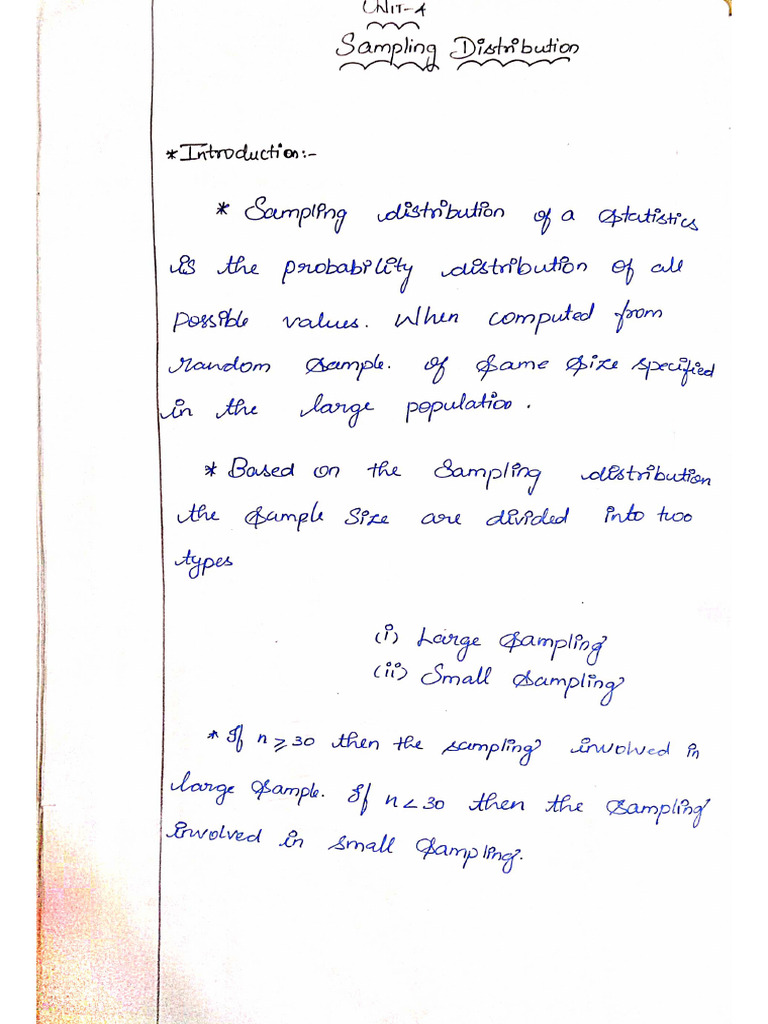 UNIT-4
Sampling Distribution
* Introduction:-
* Sampling distribution of a Statistics
is the probability distribution of all
possible values. When computed from
random sample. of same size specified
in the large population.
* Based on the Sampling distribution
the sample size are divided into two
types
(i) Large Sampling
(ii) Small Sampling
* If n ≥ 30 then the sampling involved in
large sample. If n < 30 then the sampling
involved in small sampling.